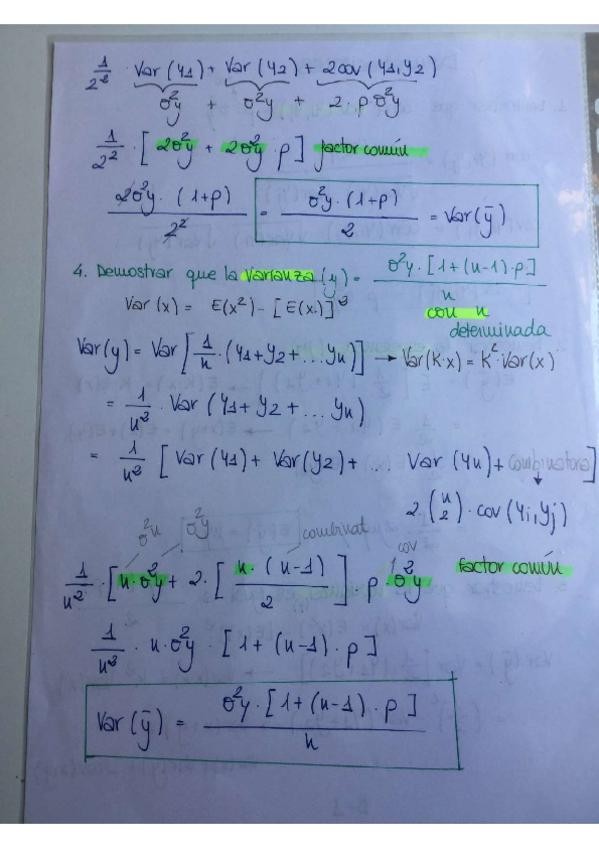 1/2² · Var(y1) + Var(y2) + 2cov(y1,y2)
σ²y + σ²y + 2 · p σ²y
1/2² · [2σ²y + 2σ²y · p] factor común
2σ²y · (1+p) / 2² = σ²y · (1+p) / 2 = Var(ȳ)
4. Demostrar que la varianza (y) = σ²y · [1+(n-1)·p] / n
con n
determinada
Var(x) = E(x²) - [E(x)]²
Var(y) = Var[1/n · (y1+y2+...yn)] → Var(K·x) = K²·Var(x)
= 1/n² · Var(y1+y2+...yn)
= 1/n² [Var(y1) + Var(y2) + ... Var(yn) + combinatoria]
2 (n 2) · cov(yi,yj)
σ²n σ²y combinat cov
1/n² · [n·σ²y + 2·[n·(n-1)/2] · p · σ²y factor común
1/n² · n·σ²y · [1+(n-1)·p]
Var(ȳ) = σ²y · [1+(n-1)·p] / n